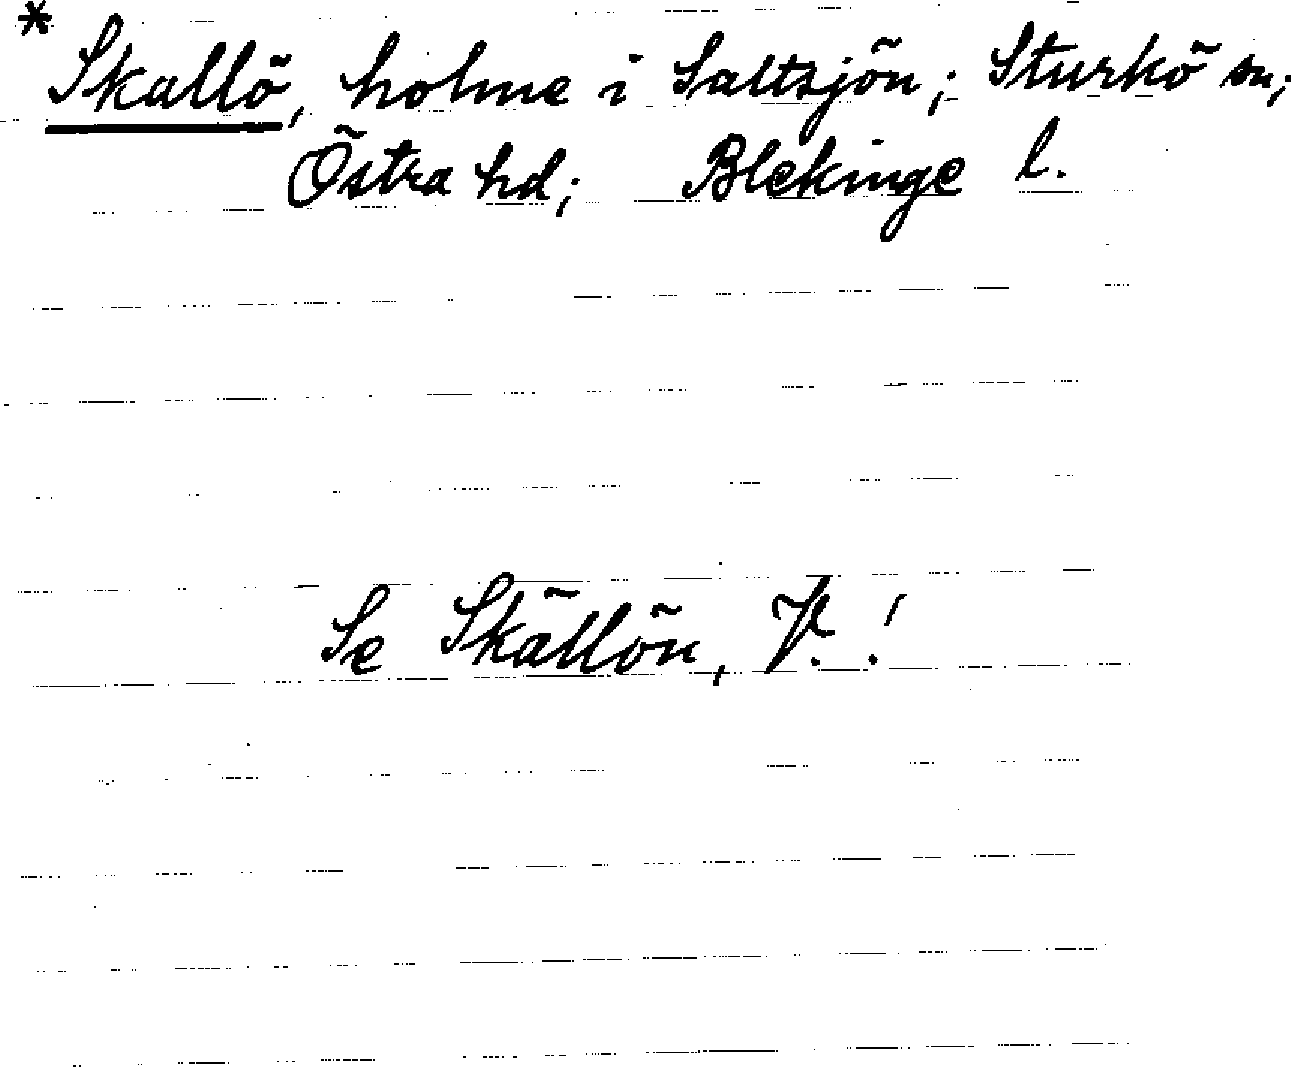 * Skallö, holme i Saltsjön; Sturkö sn;
Östra hd; Blekinge l.
Se Skällön, V.!